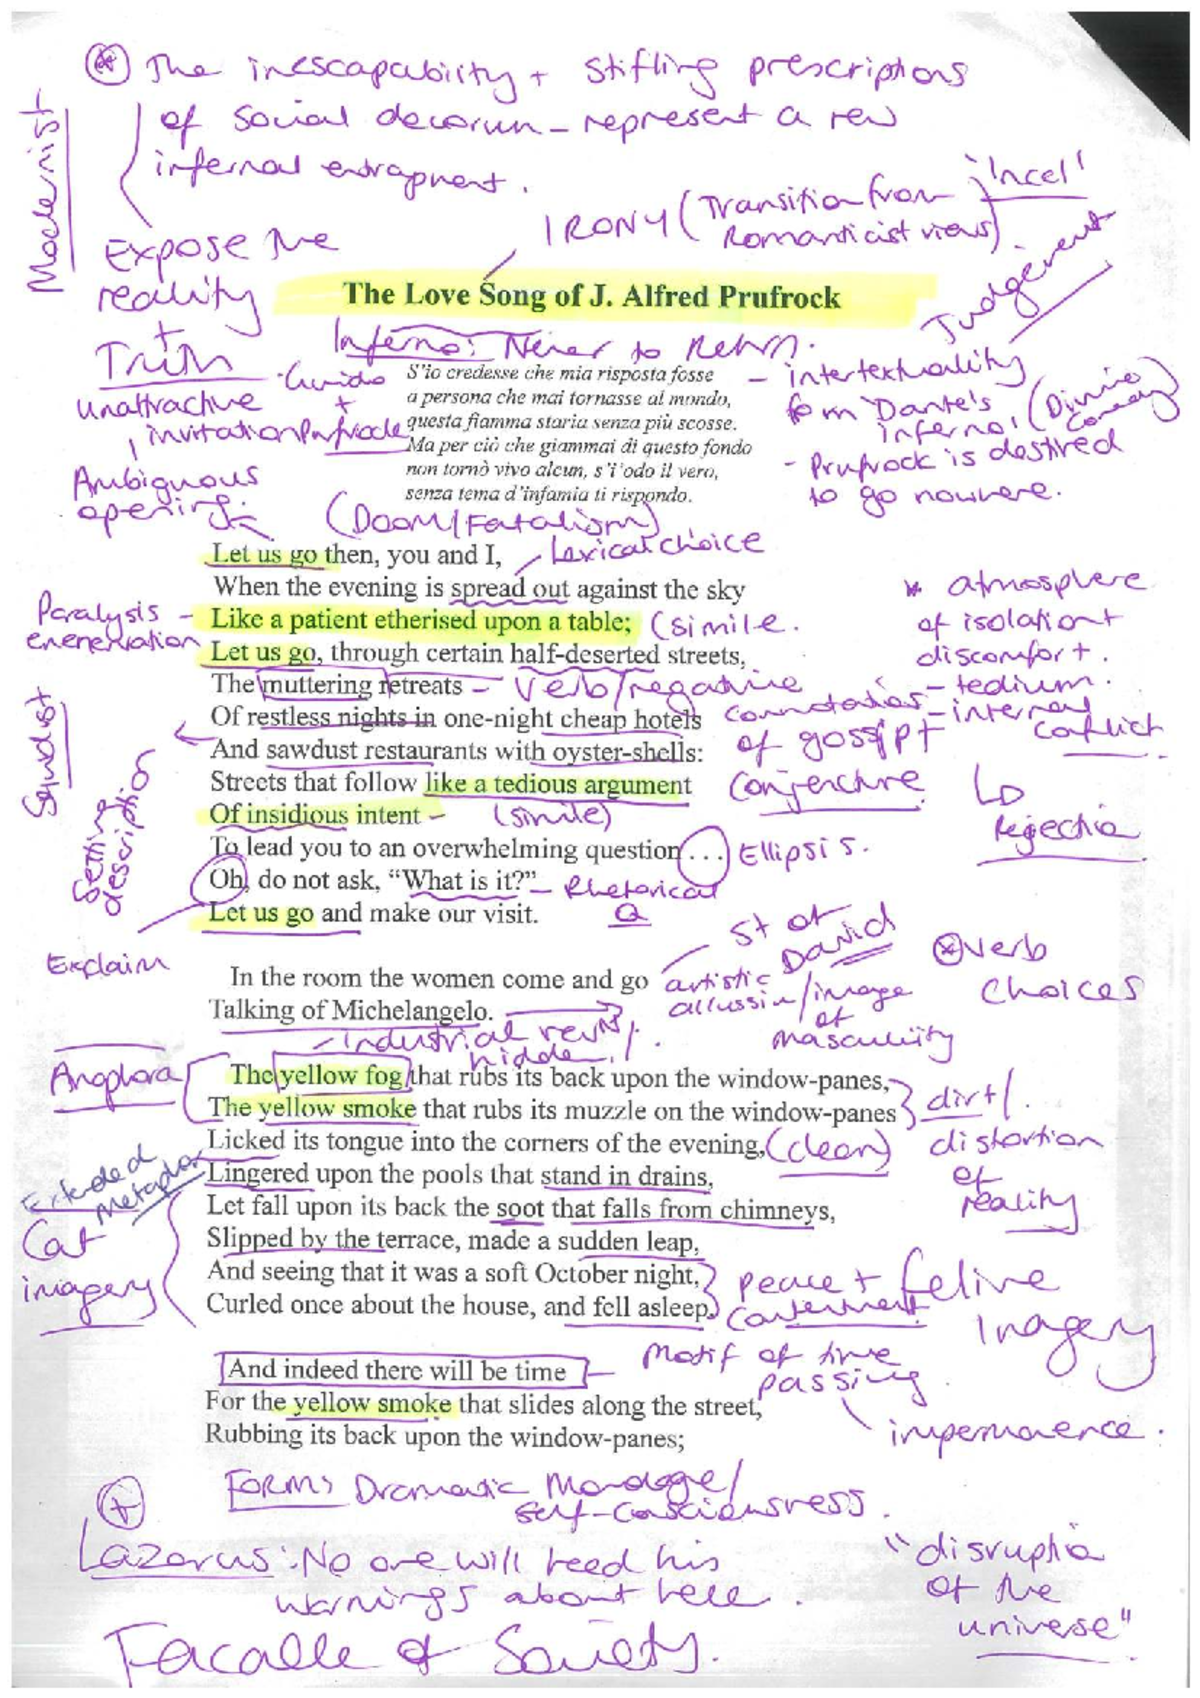 * The inescapability + stifling prescriptions
of social decorum - represent a new
infernal entrapment.
Modernist
'Incel'
IRONY (Transition from
Romanticist views).
Judgement
Expose the
reality
+
Truth
The Love Song of J. Alfred Prufrock
Inferno: Never to Return.
· Guido
+
Prufrock
S'io credesse che mia risposta fosse
a persona che mai tornasse al mondo,
questa fiamma staria senza più scosse.
Ma per ciò che giammai di questo fondo
non tornò vivo alcun, s'i'odo il vero,
senza tema d'infamia ti rispondo.
- intertextuality
from 'Dante's
inferno' (Divine
Comedy)
- Prufrock is destined
to go nowhere.
unattractive
invitation
Ambiguous
opening
(Doom/Fatalism)
Let us go then, you and I,
- Lexical choice
When the evening is spread out against the sky
Paralysis -
Like a patient etherised upon a table;
(simile.
Let us go, through certain half-deserted streets,
* atmosphere
of isolation +
discomfort.
- tedium.
- internal
conflict
↳
Rejection
The muttering retreats
- Verb/negative
connotations
of gossip +
conjencture
Of restless nights in one-night cheap hotels
And sawdust restaurants with oyster-shells:
Streets that follow like a tedious argument
Of insidious intent –
(simile)
Setting
description
To lead you to an overwhelming question…
Ellipsis.
Oh, do not ask, “What is it?”
- Rhetorical
Q
Let us go and make our visit.
Exclaim
St of
David
artistic
allussion/image
of
masculinity
* Verb
choices
In the room the women come and go
Talking of Michelangelo.
- industrial revn/
hidden
Anaphora
The yellow fog that rubs its back upon the window-panes,
The yellow smoke that rubs its muzzle on the window-panes
dirt/
distortion
of
reality
Licked its tongue into the corners of the evening,
(clean)
Extended
metaphor
Lingered upon the pools that stand in drains,
Let fall upon its back the soot that falls from chimneys,
Cat
imagery
Slipped by the terrace, made a sudden leap,
And seeing that it was a soft October night,
Curled once about the house, and fell asleep.
peace +
contentment
feline
Imagery
And indeed there will be time
- Motif of time
passing
impermanence.
For the yellow smoke that slides along the street,
Rubbing its back upon the window-panes;
Form: Dramatic Monologue/
self-consciousness.
+
Lazarus: No one will heed his
warnings about here.
"disruption
of the
universe"
Facade of Society.